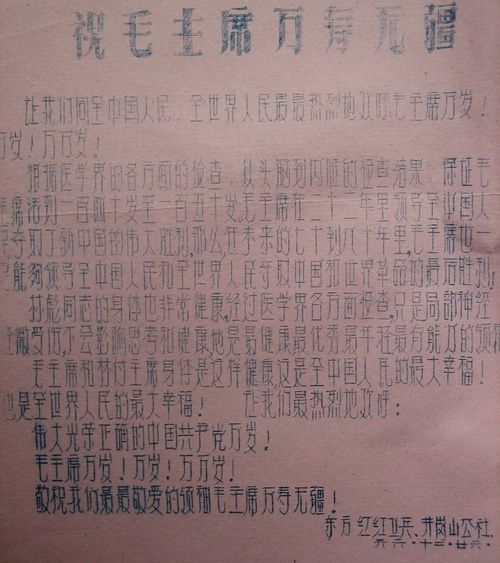 祝毛主席万寿无疆
让我们向全中国人民、全世界人民最最热烈地欢呼:毛主席万岁!
万岁!万万岁!
根据医学界的各方面的检查,从头脑到内脏的检查结果 保证毛
主席活到一百四十岁至一百五十岁。毛主席在二十二年里领导全中国人
民夺取了新中国的伟大胜利,那么,在未来的七十到八十年里,毛主席也一
定能够领导全中国人民和全世界人民夺取中国和世界革命的最后胜利!
林彪同志的身体也非常健康,经过医学界各方面检查,只是局部神经
轻微受伤,不会影响思考和健康,他是最健康最优秀最年轻最有能力的领袖
毛主席和林付主席身体是这样健康,这是全中国人民的最大幸福!
也是全世界人民的最大幸福! 让我们最热烈地欢呼:
伟大光荣正确的中国共产党万岁!
毛主席万岁!万岁!万万岁!
敬祝我们最最敬爱的领袖毛主席万寿无疆!
东方红红卫兵、井岗山公社.
六六·十二·廿六·